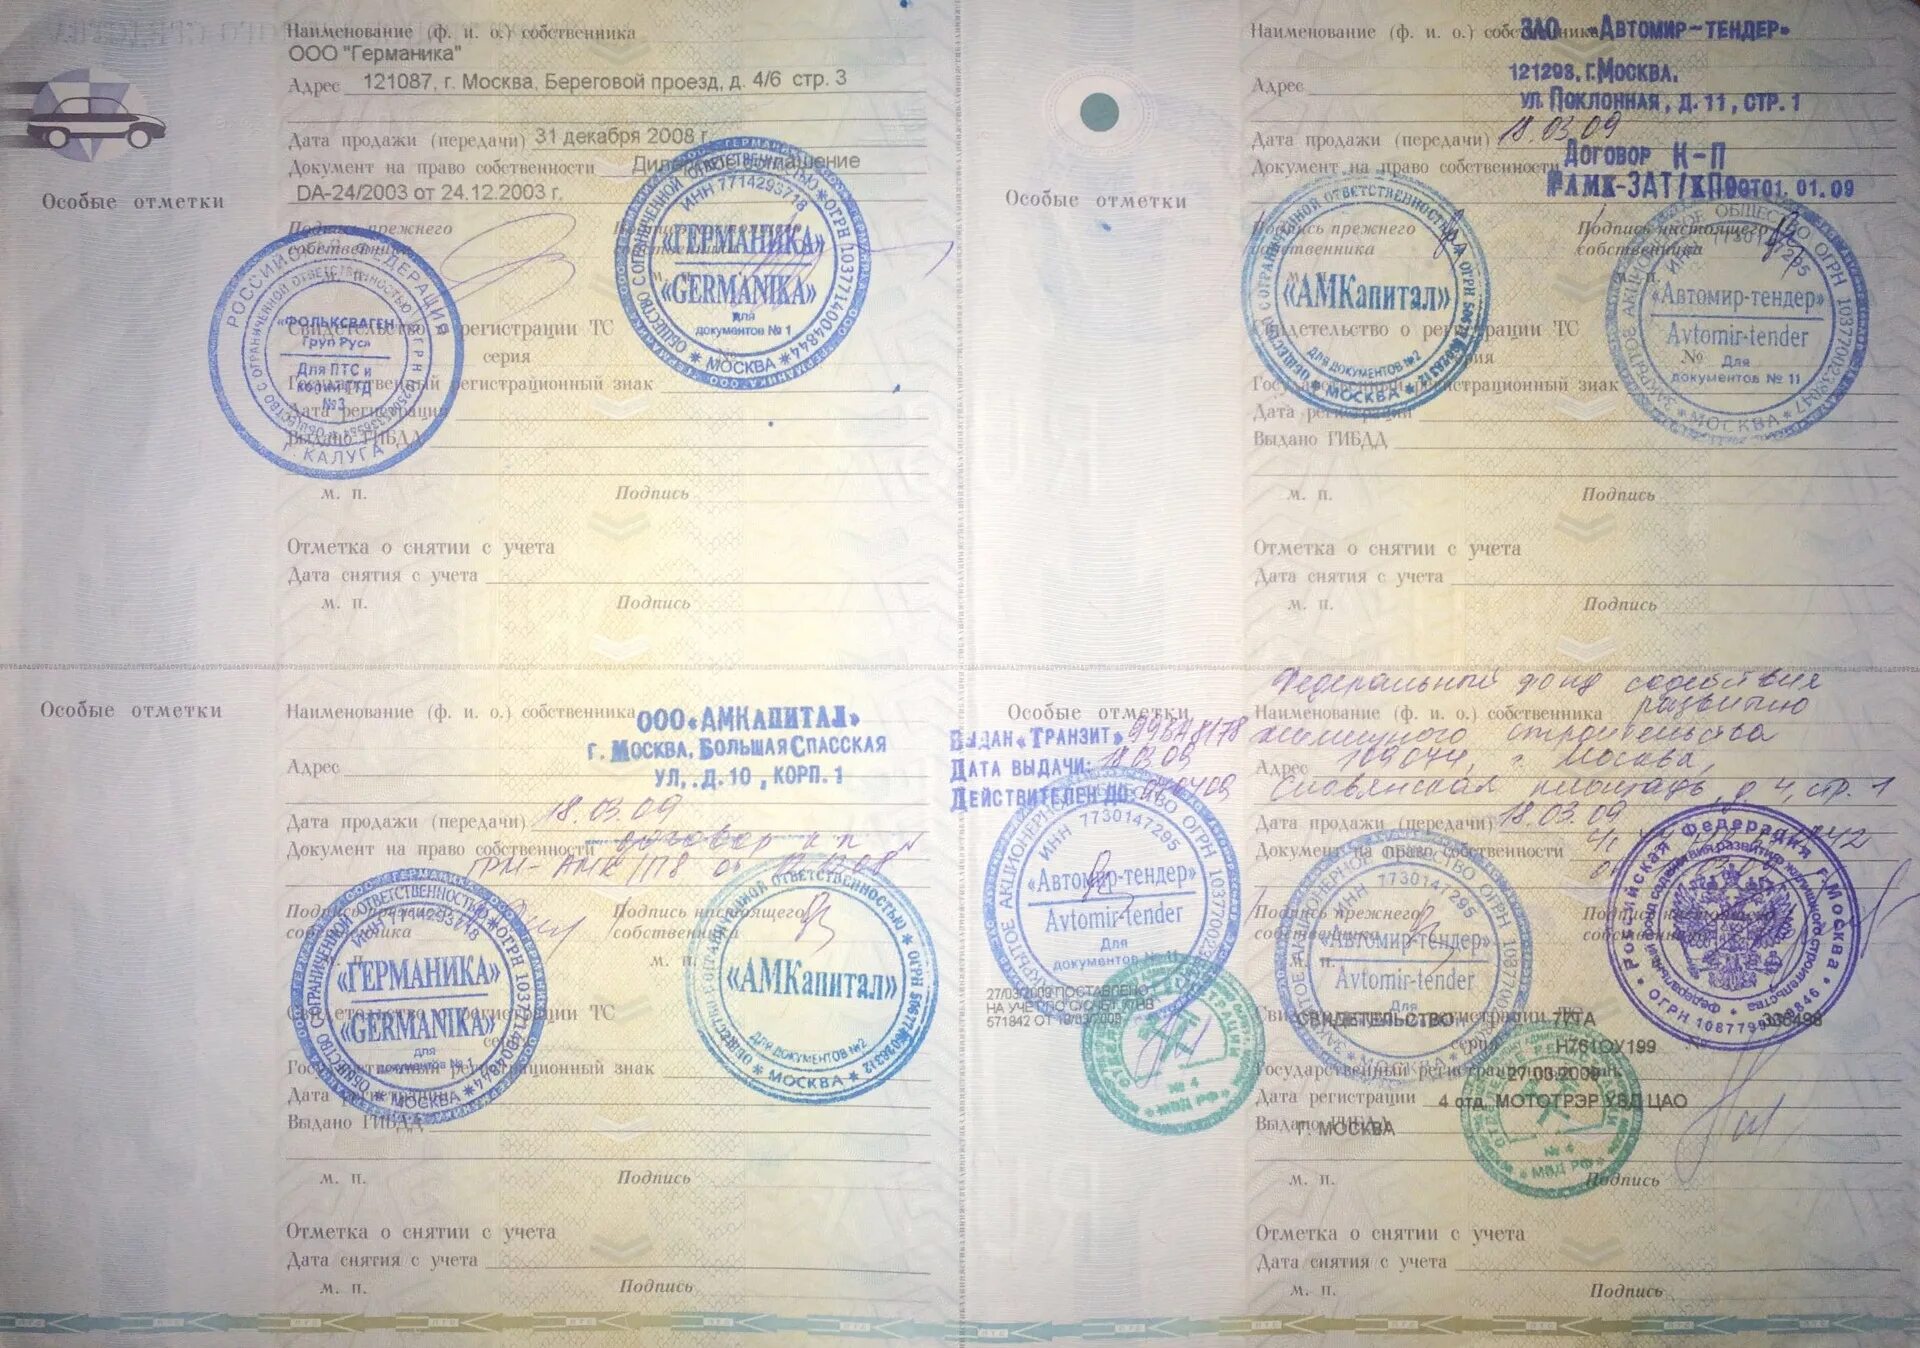 Наименование (ф. и. о.) собственника
ООО "Германика"
Адрес 121087, г. Москва, Береговой проезд, д. 4/6 стр. 3
Дата продажи (передачи) 31 декабря 2008 г.
Документ на право собственности Дилерское соглашение
DA-24/2003 от 24.12.2003 г.
Особые отметки
Подпись прежнего
собственника
РОССИЙСКАЯ ФЕДЕРАЦИЯ
ОБЩЕСТВО С ОГРАНИЧЕННОЙ ОТВЕТСТВЕННОСТЬЮ
«ФОЛЬКСВАГЕН
Груп Рус»
Для ПТС и
копий ГТД
№3
Г. КАЛУГА
ОБЩЕСТВО С ОГРАНИЧЕННОЙ ОТВЕТСТВЕННОСТЬЮ ОГРН 1037714004844
ИНН 7714293718
«ГЕРМАНИКА»
«GERMANIKA»
для
документов № 1
МОСКВА
Свидетельство о регистрации ТС
серия №
Государственный регистрационный знак
Дата регистрации
Выдано ГИБДД
м. п. Подпись
Отметка о снятии с учета
Дата снятия с учета
м. п. Подпись
Наименование (ф. и. о.) собственника ЗАО «Автомир-тендер»
Адрес 121293, г. Москва,
ул. Поклонная, д. 11, стр. 1
Дата продажи (передачи) 18.03.09
Документ на право собственности Договор К-П
РАМК-ЗАТ/КП от 01.01.09
Особые отметки
Подпись прежнего
собственника
Подпись настоящего
собственника
«АМКапитал»
Для документов №2
МОСКВА
«Автомир-тендер»
Avtomir-tender
Для
документов № 11
МОСКВА
Свидетельство о регистрации ТС
серия №
Государственный регистрационный знак
Дата регистрации
Выдано ГИБДД
м. п. Подпись
Отметка о снятии с учета
Дата снятия с учета
м. п. Подпись
Особые отметки
Наименование (ф. и. о.) собственника ООО «АМКапитал»
г. Москва, Большая Спасская
Адрес ул., д. 10, корп. 1
Дата продажи (передачи) 18.03.09
Документ на право собственности договор к-п
Подпись прежнего
собственника
Подпись настоящего
собственника
м. п.
ИНН 7714293718
«ГЕРМАНИКА»
«GERMANIKA»
для
документов № 1
МОСКВА
«АМКапитал»
Для документов №2
МОСКВА
Свидетельство о регистрации ТС
серия
Государственный регистрационный знак
Дата регистрации
Выдано ГИБДД
м. п. Подпись
Отметка о снятии с учета
Дата снятия с учета
м. п. Подпись
Особые отметки
Выдан «Транзит»
Дата выдачи: 18.03.09
Действителен до:
ИНН 7730147295
«Автомир-тендер»
Avtomir-tender
Для
документов № 11
27/03/2009 ПОСТАВЛЕНО
НА УЧЕТ
№ 4
МВД РФ
Федеральный фонд содействия
Наименование (ф. и. о.) собственника развитию
жилищного строительства
Адрес 109074, г. Москва,
Славянская площадь, д. 4, стр. 1
Дата продажи (передачи) 18.03.09
Документ на право собственности
Подпись прежнего
собственника
м. п.
Подпись настоящего
собственника
ИНН 7730147295
«Автомир-тендер»
Avtomir-tender
Для
Российская Федерация г. Москва
Свидетельство о регистрации ТС
СВИДЕТЕЛЬСТВО 77ТА
серия Н761ОУ199
Государственный регистрационный знак
27.03.2009
Дата регистрации 4 отд. МОТОТРЭР УВД ЦАО
Выдано ГИБДД Г. МОСКВА
№ 4
МВД РФ
м. п. Подпись
Отметка о снятии с учета
Дата снятия с учета
м. п. Подпись